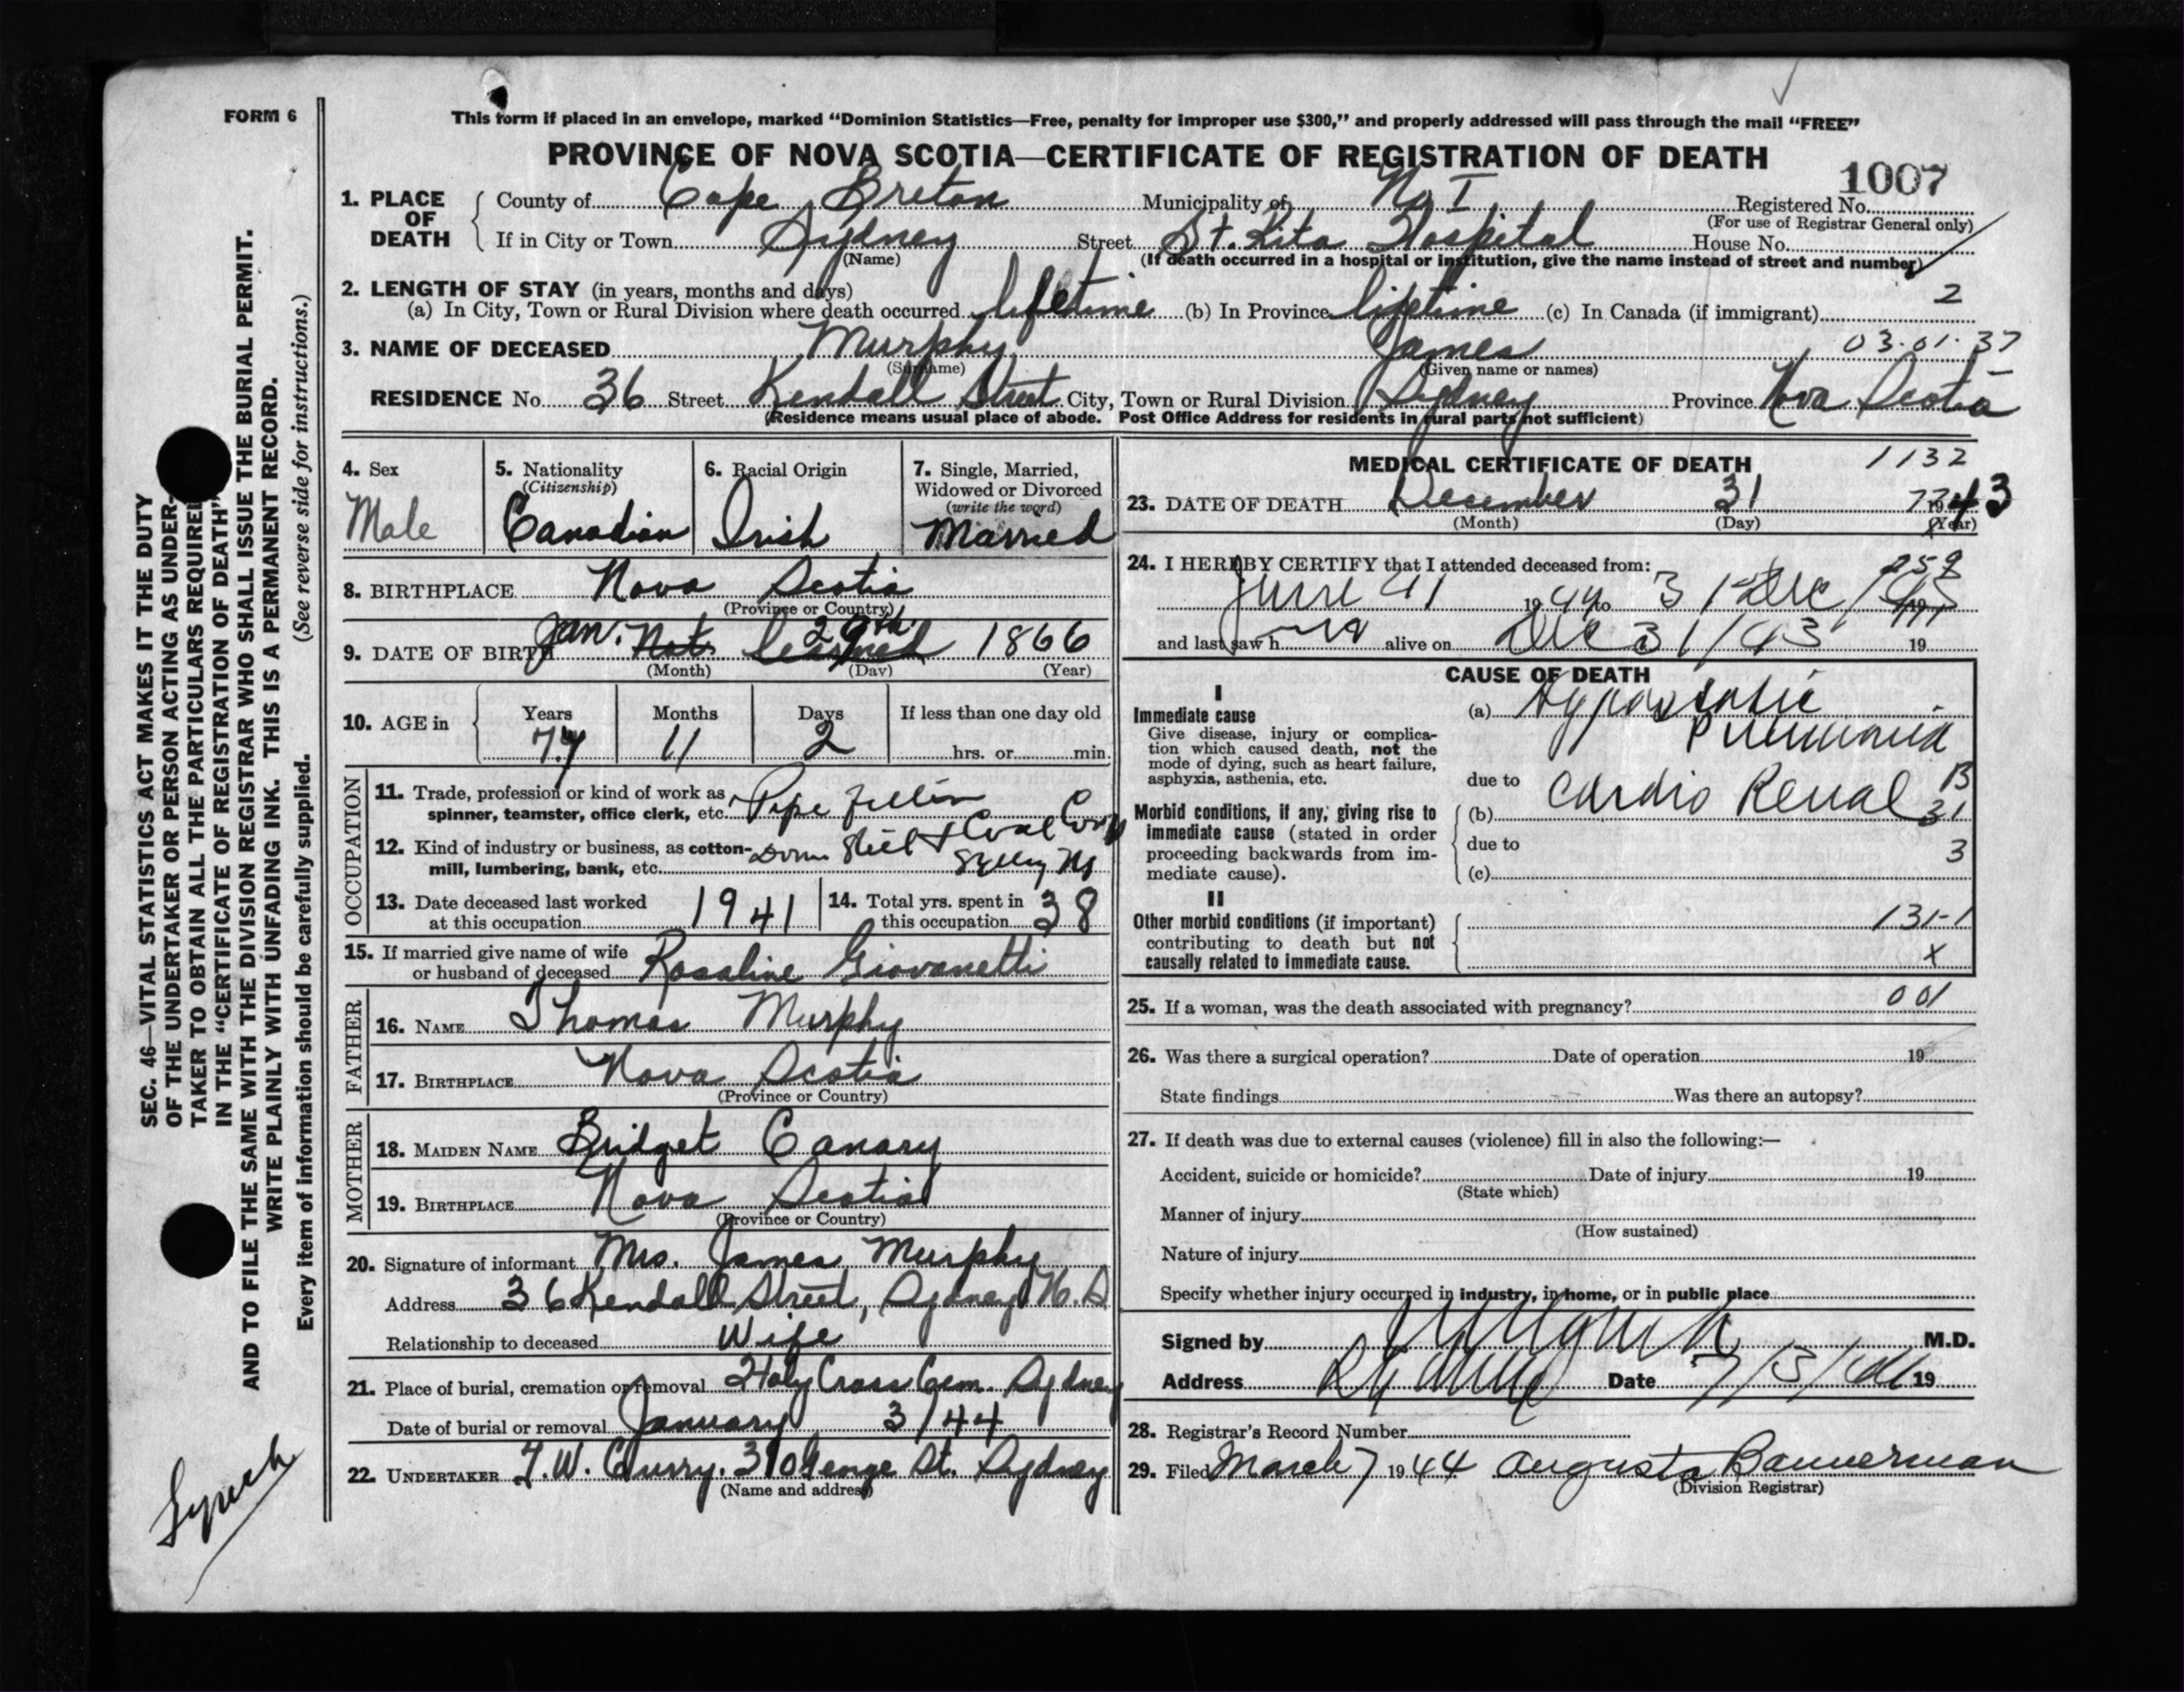 FORM 6
This form if placed in an envelope, marked "Dominion Statistics—Free, penalty for improper use $300," and properly addressed will pass through the mail "FREE"
PROVINCE OF NOVA SCOTIA—CERTIFICATE OF REGISTRATION OF DEATH
1007
1. PLACE OF DEATH
County of Cape Breton Municipality of No I Registered No.
(For use of Registrar General only)
If in City or Town Sydney Street St. Rita Hospital House No.
(Name) (If death occurred in a hospital or institution, give the name instead of street and number)
2. LENGTH OF STAY (in years, months and days) 2
(a) In City, Town or Rural Division where death occurred lifetime (b) In Province lifetime (c) In Canada (if immigrant)
3. NAME OF DECEASED Murphy James 03.01.37
(Surname) (Given name or names)
RESIDENCE No. 36 Street Kendall Street City, Town or Rural Division Sydney Province Nova Scotia
(Residence means usual place of abode. Post Office Address for residents in rural parts not sufficient)
4. Sex
Male
5. Nationality
(Citizenship)
Canadian
6. Racial Origin
Irish
7. Single, Married, Widowed or Divorced
(write the word)
Married
8. BIRTHPLACE Nova Scotia
(Province or Country)
9. DATE OF BIRTH Jan. Not 29th learned 1866
(Month) (Day) (Year)
10. AGE in Years Months Days If less than one day old
77 11 2 hrs. or min.
OCCUPATION
11. Trade, profession or kind of work as
spinner, teamster, office clerk, etc. Pipe
12. Kind of industry or business, as cotton-
mill, lumbering, bank, etc. Dom Steel & Coal Corp
13. Date deceased last worked
at this occupation 1941
14. Total yrs. spent in
this occupation 38
15. If married give name of wife
or husband of deceased Rosaline Giovanetti
FATHER
16. NAME Thomas Murphy
17. BIRTHPLACE Nova Scotia
(Province or Country)
MOTHER
18. MAIDEN NAME Bridget Canary
19. BIRTHPLACE Nova Scotia
(Province or Country)
20. Signature of informant Mrs. James Murphy
Address 36 Kendall Street, Sydney N.S
Relationship to deceased Wife
21. Place of burial, cremation or removal Holy Cross Cem. Sydney
Date of burial or removal January 3/44
22. UNDERTAKER T.W. Curry. St. Sydney
(Name and address)
MEDICAL CERTIFICATE OF DEATH 1132
23. DATE OF DEATH December 31 1943
(Month) (Day) (Year)
24. I HEREBY CERTIFY that I attended deceased from:
June 41 19 to 31 Dec
and last saw h alive on Dec 31/43 19
CAUSE OF DEATH
I
Immediate cause
Give disease, injury or complica-
tion which caused death, not the
mode of dying, such as heart failure,
asphyxia, asthenia, etc.
(a) Hypostatic
Pneumonia
due to
Morbid conditions, if any, giving rise to
immediate cause (stated in order
proceeding backwards from im-
mediate cause).
(b) Cardio Renal B
31
due to 3
(c)
II
Other morbid conditions (if important)
contributing to death but not
causally related to immediate cause.
131-1
x
25. If a woman, was the death associated with pregnancy? 001
26. Was there a surgical operation? Date of operation 19
State findings Was there an autopsy?
27. If death was due to external causes (violence) fill in also the following:—
Accident, suicide or homicide? Date of injury 19
(State which)
Manner of injury
(How sustained)
Nature of injury
Specify whether injury occurred in industry, in home, or in public place
Signed by M.D.
Address Sydney Date 7/3/44 19
28. Registrar's Record Number
29. Filed March 7 1944 Augusta Bannerman
(Division Registrar)
SEC. 46—VITAL STATISTICS ACT MAKES IT THE DUTY
OF THE UNDERTAKER OR PERSON ACTING AS UNDER-
TAKER TO OBTAIN ALL THE PARTICULARS REQUIRED
IN THE "CERTIFICATE OF REGISTRATION OF DEATH"
AND TO FILE THE SAME WITH THE DIVISION REGISTRAR WHO SHALL ISSUE THE BURIAL PERMIT.
WRITE PLAINLY WITH UNFADING INK. THIS IS A PERMANENT RECORD.
Every item of information should be carefully supplied. (See reverse side for instructions.)
Lynch